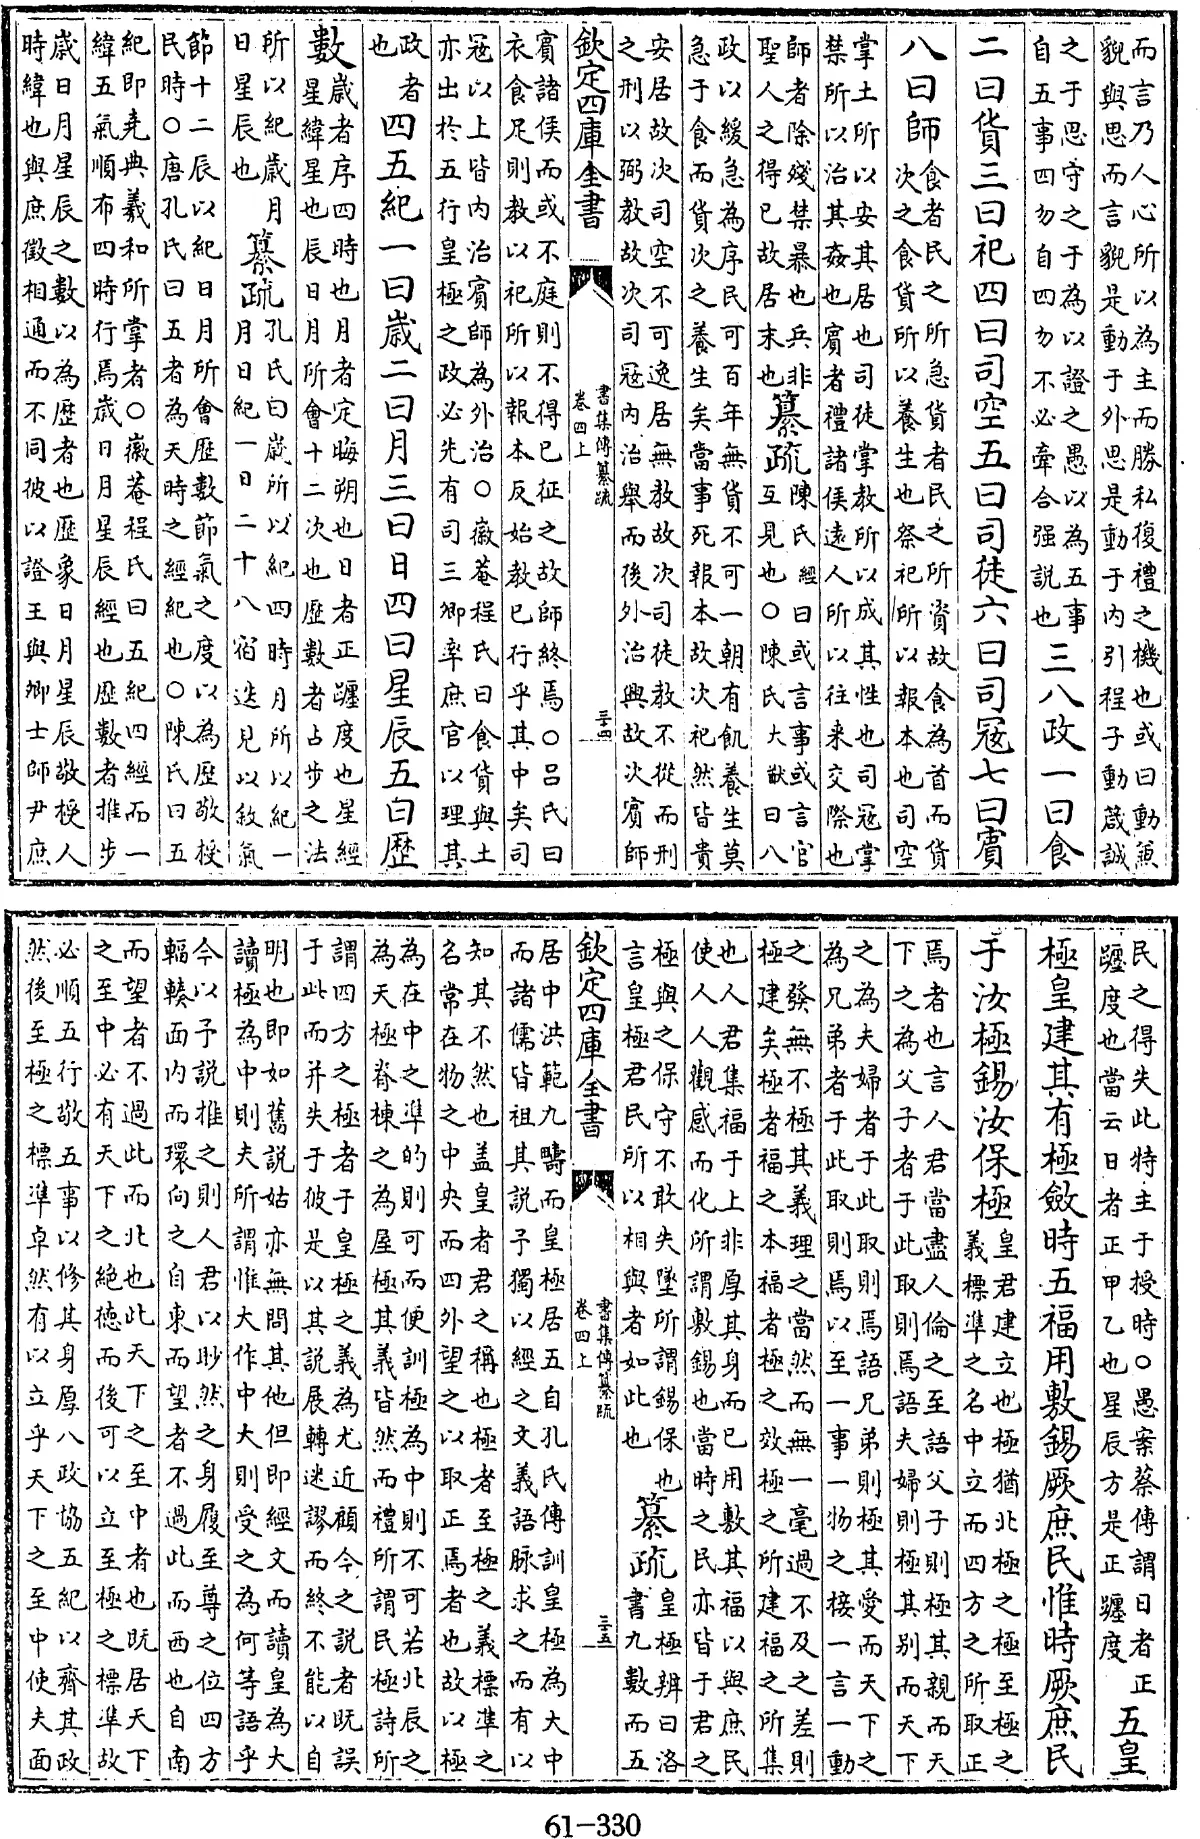 而言乃人心所以為主而勝私復禮之機也或曰動兼
貌與思而言貌是動于外思是動于内引程子動箴誠
之于思守之于為以證之愚以為五事
自五事四勿自四勿不必牽合强説也
三八政一曰食
二曰貨三曰祀四曰司空五曰司徒六曰司冦七曰賓
八曰師
食者民之所急貨者民之所資故食為首而貨
次之食貨所以養生也祭祀所以報本也司空
掌土所以安其居也司徒掌教所以成其性也司冦掌
禁所以治其姦也賓者禮諸侯逺人所以往来交際也
師者除殘禁暴也兵非
聖人之得已故居末也
纂疏
陳氏經曰或言事或言官
互見也○陳氏大猷曰八
政以緩急為序民可百年無貨不可一朝有飢養生莫
急于食而貨次之養生矣當事死報本故次祀然皆貴
安居故次司空不可逸居無教故次司徒教不從而刑
之刑以弼教故次司冦内治舉而後外治興故次賓師
欽定四庫全書
書集傳纂疏
卷四上
三四
賓諸侯而或不庭則不得已征之故師終焉○吕氏曰
衣食足則教以祀所以報本反始教已行乎其中矣司
冦以上皆内治賓師為外治○徽菴程氏曰食貨與土
亦出於五行皇極之政必先有司三卿率庶官以理其
政者
也
四五紀一曰嵗二曰月三曰日四曰星辰五曰歴
數
歲者序四時也月者定晦朔也日者正躔度也星經
星緯星也辰日月所會十二次也歴數者占步之法
所以紀嵗月
日星辰也
纂疏
孔氏曰嵗所以紀四時月所以紀一
月日紀一日二十八宿迭見以敘氣
節十二辰以紀日月所會歴數節氣之度以為歴敬授
民時○唐孔氏曰五者為天時之經紀也○陳氏曰五
紀即堯典羲和所掌者○徽菴程氏曰五紀四經而一
緯五氣順布四時行焉嵗日月星辰經也歴數者推步
嵗日月星辰之數以為歴者也歴象日月星辰敬授人
時緯也與庶徵相通而不同彼以證王與卿士師尹庶
民之得失此特主于授時○愚案蔡傳謂日者正
躔度也當云日者正甲乙也星辰方是正躔度
五皇
極皇建其有極斂時五福用敷錫厥庶民惟時厥庶民
于汝極錫汝保極
皇君建立也極猶北極之極至極之
義標凖之名中立而四方之所取正
焉者也言人君當盡人倫之至語父子則極其親而天
下之為父子者于此取則焉語夫婦則極其别而天下
之為夫婦者于此取則焉語兄弟則極其愛而天下之
為兄弟者于此取則焉以至一事一物之接一言一動
之發無不極其義理之當然而無一毫過不及之差則
極建矣極者福之本福者極之效極之所建福之所集
也人君集福于上非厚其身而已用敷其福以與庶民
使人人觀感而化所謂敷錫也當時之民亦皆于君之
極與之保守不敢失墜所謂錫保也
言皇極君民所以相與者如此也
纂疏
皇極辨曰洛
書九數而五
欽定四庫全書
書集傳纂疏
卷四上
三五
居中洪範九疇而皇極居五自孔氏傳訓皇極為大中
而諸儒皆祖其説予獨以經之文義語脉求之而有以
知其不然也盖皇者君之稱也極者至極之義標凖之
名常在物之中央而四外望之以取正焉者也故以極
為在中之凖的則可而便訓極為中則不可若北辰之
為天極脊棟之為屋極其義皆然而禮所謂民極詩所
謂四方之極者于皇極之義為尤近顧今之説者既誤
于此而并失于彼是以其説展轉迷謬而終不能以自
明也即如舊説姑亦無問其他但即經文而讀皇為大
讀極為中則夫所謂惟大作中大則受之為何等語乎
今以予説推之則人君以眇然之身履至尊之位四方
輻輳面内而環向之自東而望者不過此而西也自南
而望者不過此而北也此天下之至中者也既居天下
之至中必有天下之絶徳而後可以立至極之標凖故
必順五行敬五事以修其身厚八政協五紀以齊其政
然後至極之標準卓然有以立乎天下之至中使夫面
61-330